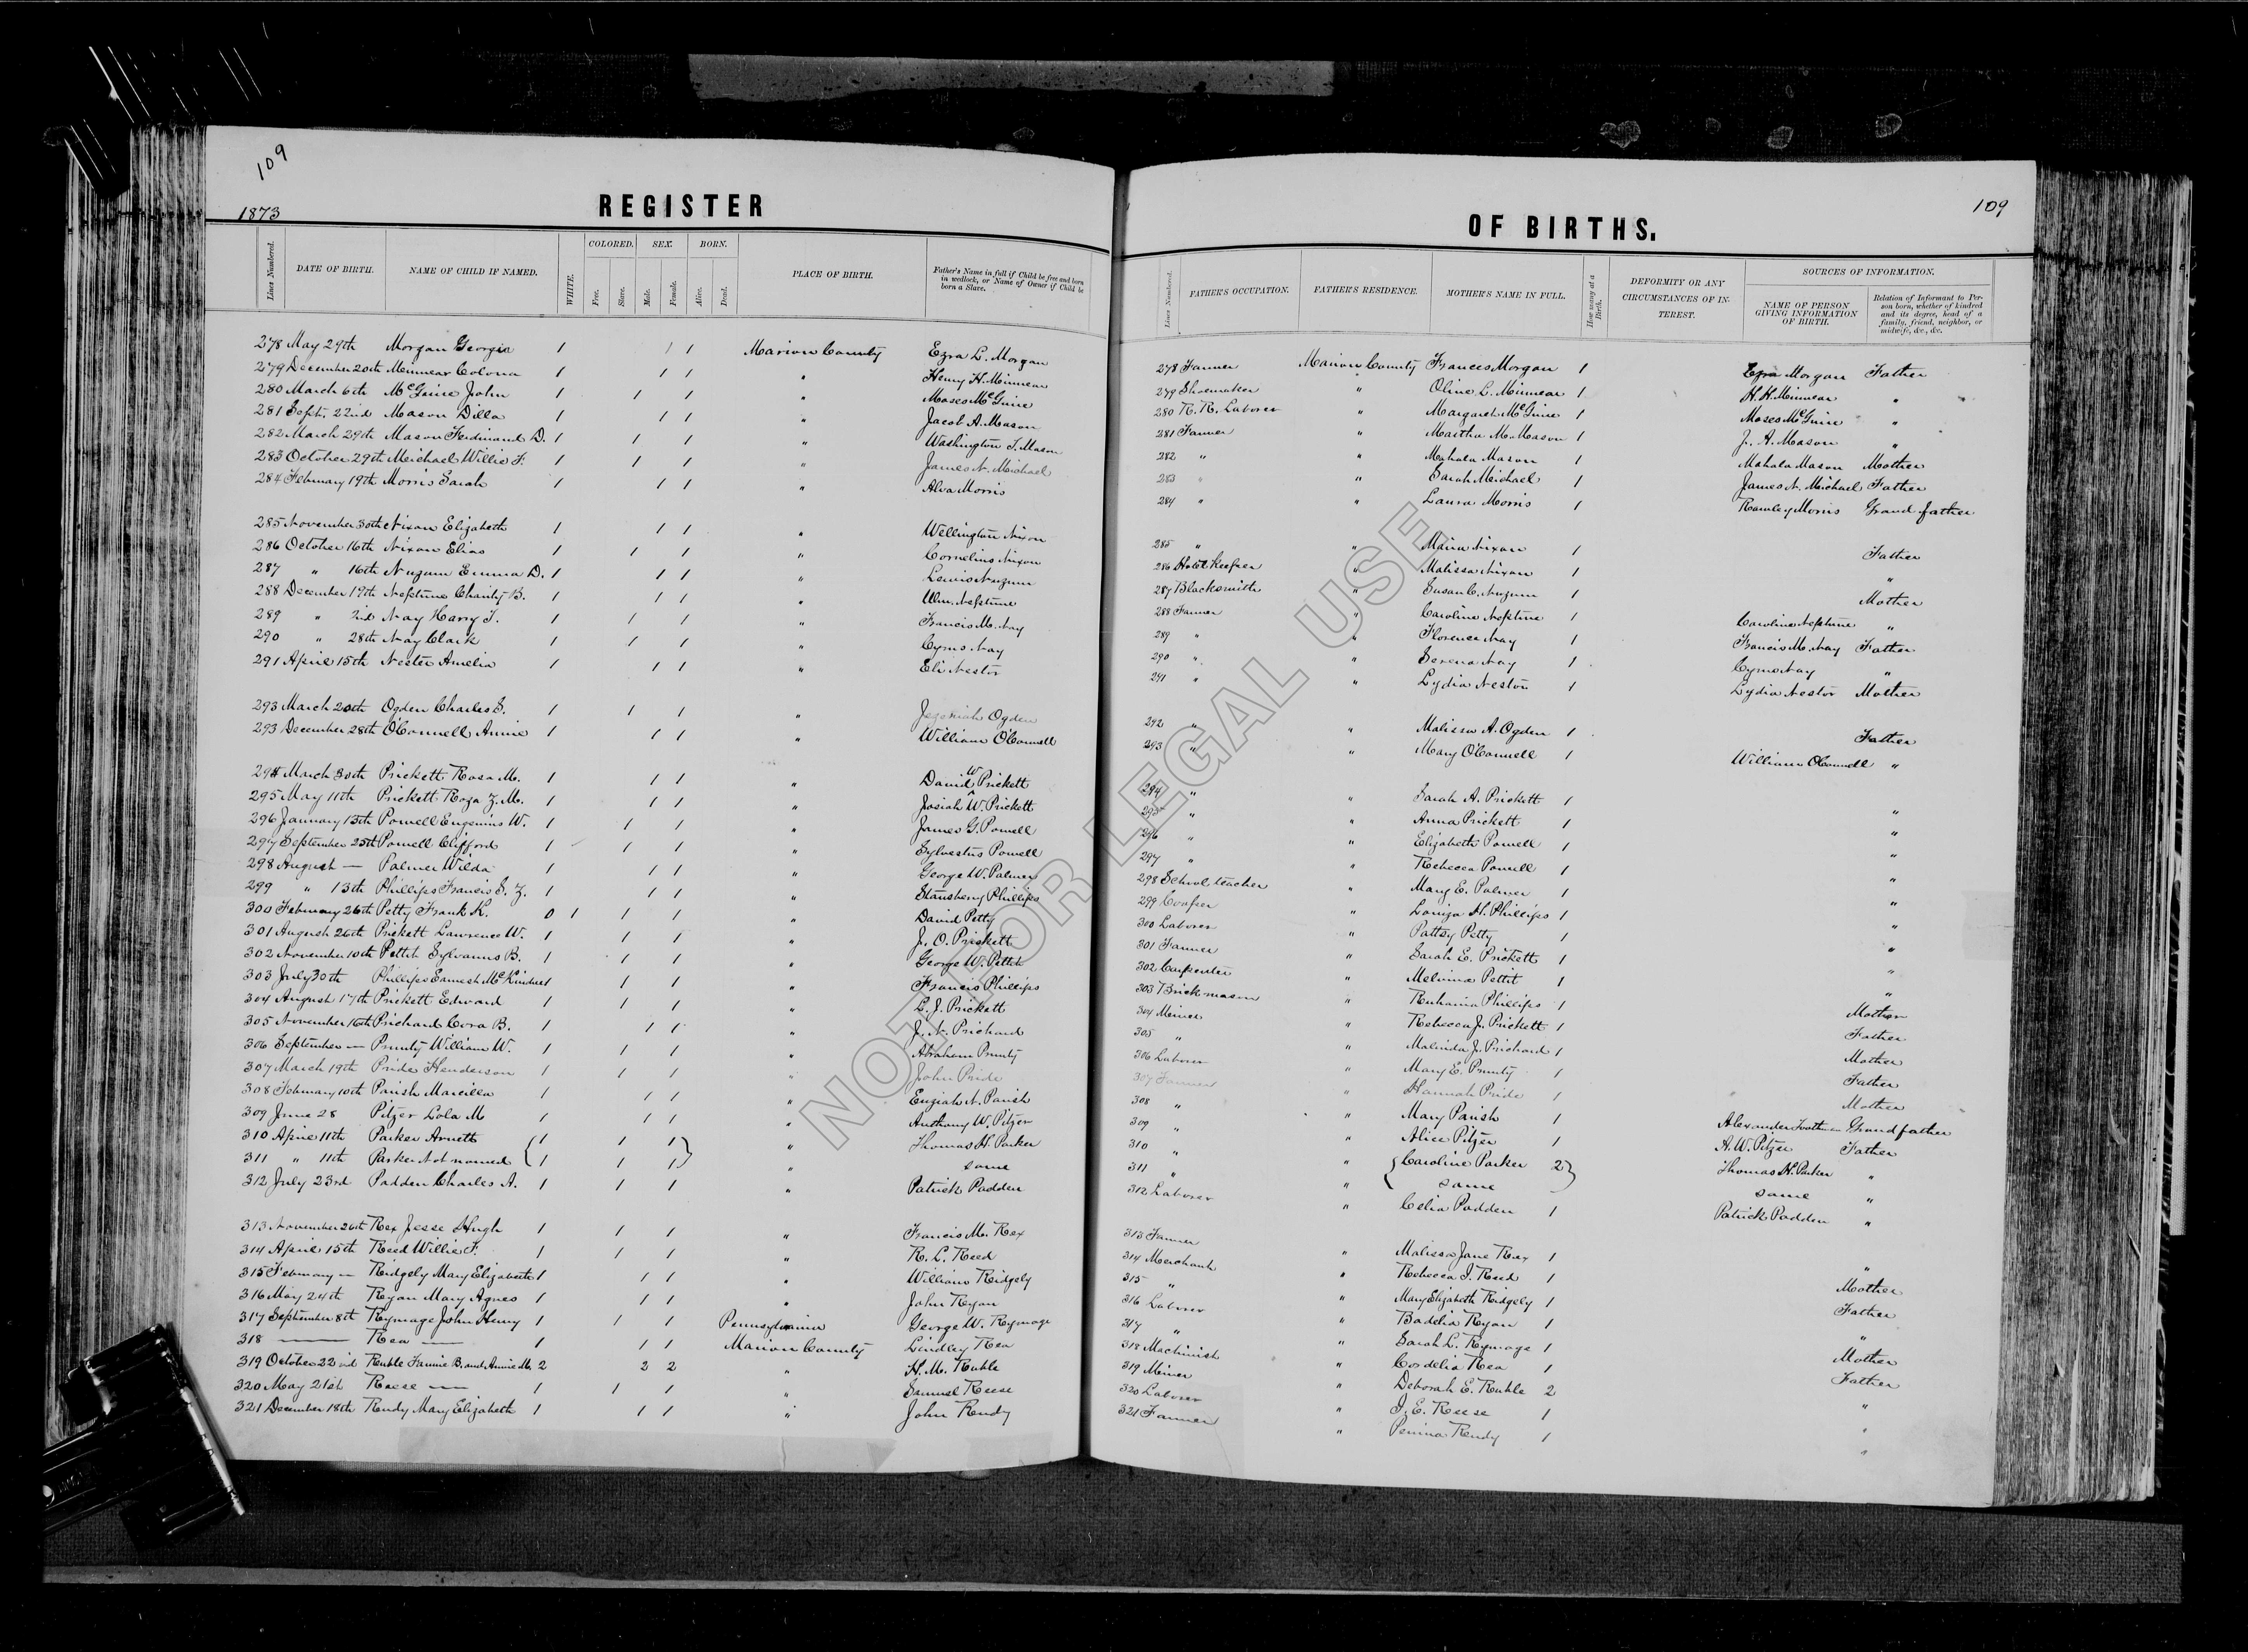 109
1873
REGISTER
Lines Numbered. DATE OF BIRTH. NAME OF CHILD IF NAMED. WHITE. COLORED. Free. Slave. SEX. Male. Female. BORN. Alive. Dead. PLACE OF BIRTH. Father's Name in full if Child be free and born in wedlock, or Name of Owner if Child be born a Slave.
278 May 29th Morgan Georgia 1 1 1 Marion County Ezra L. Morgan
279 December 20th Minnear Colona 1 1 1 " Henry H. Minnear
280 March 6th McGuire John 1 1 1 " Moses McGuire
281 Sept. 22nd Mason Dilla 1 1 1 " Jacob A. Mason
282 March 29th Mason Ferdinand D. 1 1 1 " Washington T. Mason
283 October 29th Meichael Willie F. 1 1 1 " James N. Michael
284 February 19th Morris Sarah 1 1 1 " Alva Morris
285 November 30th Nixon Elizabeth 1 1 1 " Wellington Nixon
286 October 16th Nixon Elias 1 1 1 " Cornelius Nixon
287 " 16th Nuzum Emma D. 1 1 1 " Lewis Nuzum
288 December 19th Neptune Charity B. 1 1 1 " Wm. Neptune
289 " 2nd Nay Harry T. 1 1 1 " Francis M. Nay
290 " 28th Nay Clark 1 1 1 " Cyrus Nay
291 April 15th Nestor Amelia 1 1 1 " Eli Nestor
293 March 20th Ogden Charles S. 1 1 1 " Jegeniah Ogden
293 December 28th O'Connell Annie 1 1 1 " William O'Connell
294 March 30th Prickett Rosa M. 1 1 1 " David W Prickett
295 May 11th Prickett Roza Z. M. 1 1 1 " Josiah W. Prickett
296 January 13th Powell Eugenius W. 1 1 1 " James G. Powell
297 September 25th Powell Clifford 1 1 1 " Sylvestus Powell
298 August — Palmer Wilda 1 1 1 " George W. Palmer
299 " 13th Phillips Francis S. Z. 1 1 1 " Stansberry Phillips
300 February 26th Petty Frank K. 0 1 1 1 " David Petty
301 August 26th Prickett Lawrence W. 1 1 1 " J. O. Prickett
302 November 10th Pettit Sylvanus B. 1 1 1 " George W. Pettit
303 July 30th Phillips Earnest McKindree 1 1 1 " Francis Phillips
304 August 17th Prickett Edward 1 1 1 " L. J. Prickett
305 November 16th Prichard Cora B. 1 1 1 " J. N. Prichard
306 September — Prunty William W. 1 1 1 " Abraham Prunty
307 March 19th Pride Henderson 1 1 1 " John Pride
308 February 10th Parish Marcilla 1 1 1 " Euziah N. Parish
309 June 28 Pitzer Lola M 1 1 1 " Anthony W. Pitzer
310 April 11th Parker Arnett 1 1 1 " Thomas H. Parker
311 " 11th Parker Not named 1 1 1 " same
312 July 23rd Padden Charles A. 1 1 1 " Patrick Padden
313 November 26th Rex Jesse Hugh 1 1 1 " Francis M. Rex
314 April 15th Reed Willie F. 1 1 1 " R. L. Reed
315 February — Ridgely Mary Elizabeth 1 1 1 " William Ridgely
316 May 24th Ryan Mary Agnes 1 1 1 " John Ryan
317 September 8th Rymage John Henry 1 1 1 Pennsylvania George W. Rymage
318 — Rea — 1 1 1 Marion County Lindley Rea
319 October 22nd Ruble Fannie B. and Annie M. 2 2 2 " H. M. Ruble
320 May 21st Reese — 1 1 1 " Samuel Reese
321 December 18th Rendy Mary Elizabeth 1 1 1 " John Rendy
109
OF BIRTHS.
Lines Numbered. FATHER'S OCCUPATION. FATHER'S RESIDENCE. MOTHER'S NAME IN FULL. How many at a Birth. DEFORMITY OR ANY CIRCUMSTANCES OF INTEREST. SOURCES OF INFORMATION. NAME OF PERSON GIVING INFORMATION OF BIRTH. Relation of Informant to Person born, whether of kindred and its degree, head of a family, friend, neighbor, or midwife, &c., &c.
278 Farmer Marion County Frances Morgan 1 Ezra Morgan Father
279 Shoemaker " Oline L. Minnear 1 H. H. Minnear "
280 R. R. Laborer " Margaret McGuire 1 Moses McGuire "
281 Farmer " Martha M. Mason 1 J. A. Mason "
282 " " Mahala Mason 1 Mahala Mason Mother
283 " " Sarah Michael 1 James N. Michael Father
284 " " Laura Morris 1 Rawley Morris Grand father
285 " " Maria Nixon 1 Father
286 Hotel Keeper " Malissa Nixon 1 "
287 Blacksmith " Susan C. Nuzum 1 Mother
288 Farmer " Caroline Neptune 1 Caroline Neptune "
289 " " Florence Nay 1 Francis M. Nay Father
290 " " Serena Nay 1 Cyrus Nay "
291 " " Lydia Nestor 1 Lydia Nestor Mother
292 " " Malissa A. Ogden 1 Father
293 " " Mary O'Connell 1 William O'Connell "
294 " " Sarah A. Prickett 1 "
295 " " Anna Prickett 1 "
296 " " Elizabeth Powell 1 "
297 " " Rebecca Powell 1 "
298 School teacher " Mary E. Palmer 1 "
299 Cooper " Louiza H. Phillips 1 "
300 Laborer " Pattsy Petty 1 "
301 Farmer " Sarah E. Prickett 1 "
302 Carpenter " Melvina Pettit 1 "
303 Brick mason " Ruhama Phillips 1 Mother
304 Meiner " Rebecca J. Prickett 1 Father
305 " " Malinda J. Prichard 1 Mother
306 Laborer " Mary E. Prunty 1 Father
307 Farmer " Hannah Pride 1 Mother
308 " " Mary Parish 1 Alexander Toothman Grandfather
309 " " Alice Pitzer 1 A. W. Pitzer Father
310 " " Caroline Parker 2 Thomas H. Parker "
311 " " same same "
312 Laborer " Celia Padden 1 Patrick Padden "
313 Farmer " Malissa Jane Rex 1 "
314 Merchant " Rebecca J. Reed 1 Mother
315 " " Mary Elizabeth Ridgely 1 Father
316 Laborer " Badelia Ryan 1 "
317 " " Sarah L. Rymage 1 Mother
318 Machinist " Cordelia Rea 1 Father
319 Meiner " Deborah E. Ruble 2 "
320 Laborer " I. E. Reese 1 "
321 Farmer " Penina Rendy 1 "
NOT FOR LEGAL USE